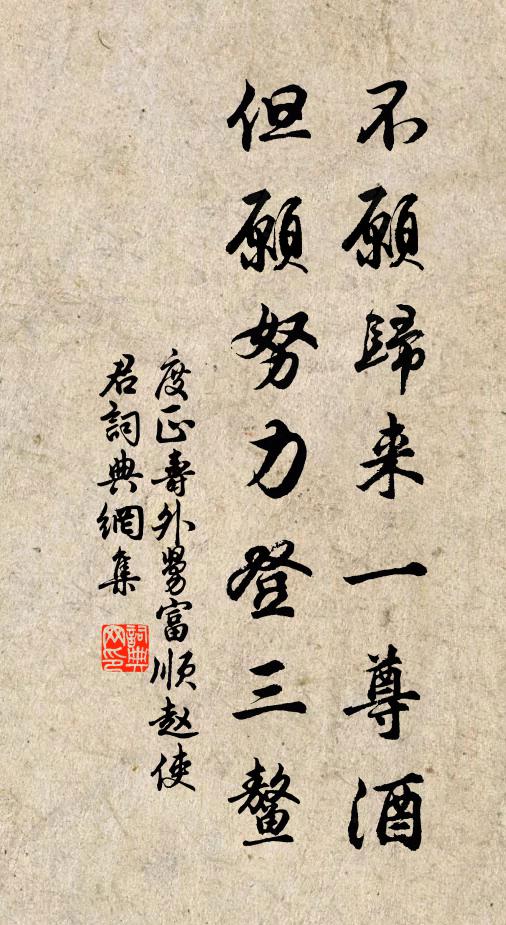 不願歸来一尊酒
但願努力登三鳌
度正壽外舅富順赵使
君詞典網集
詞典
网印